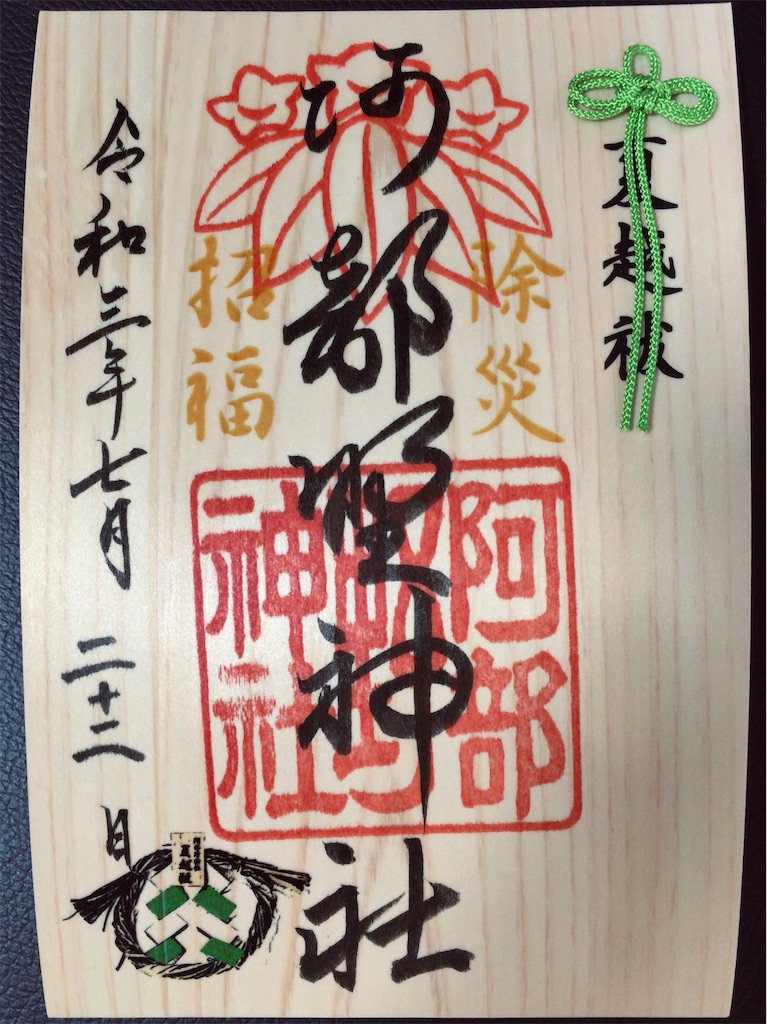 夏越祓
除災
阿部野神社
招福
阿部
神社
令和三年七月 二十二日
夏越祓